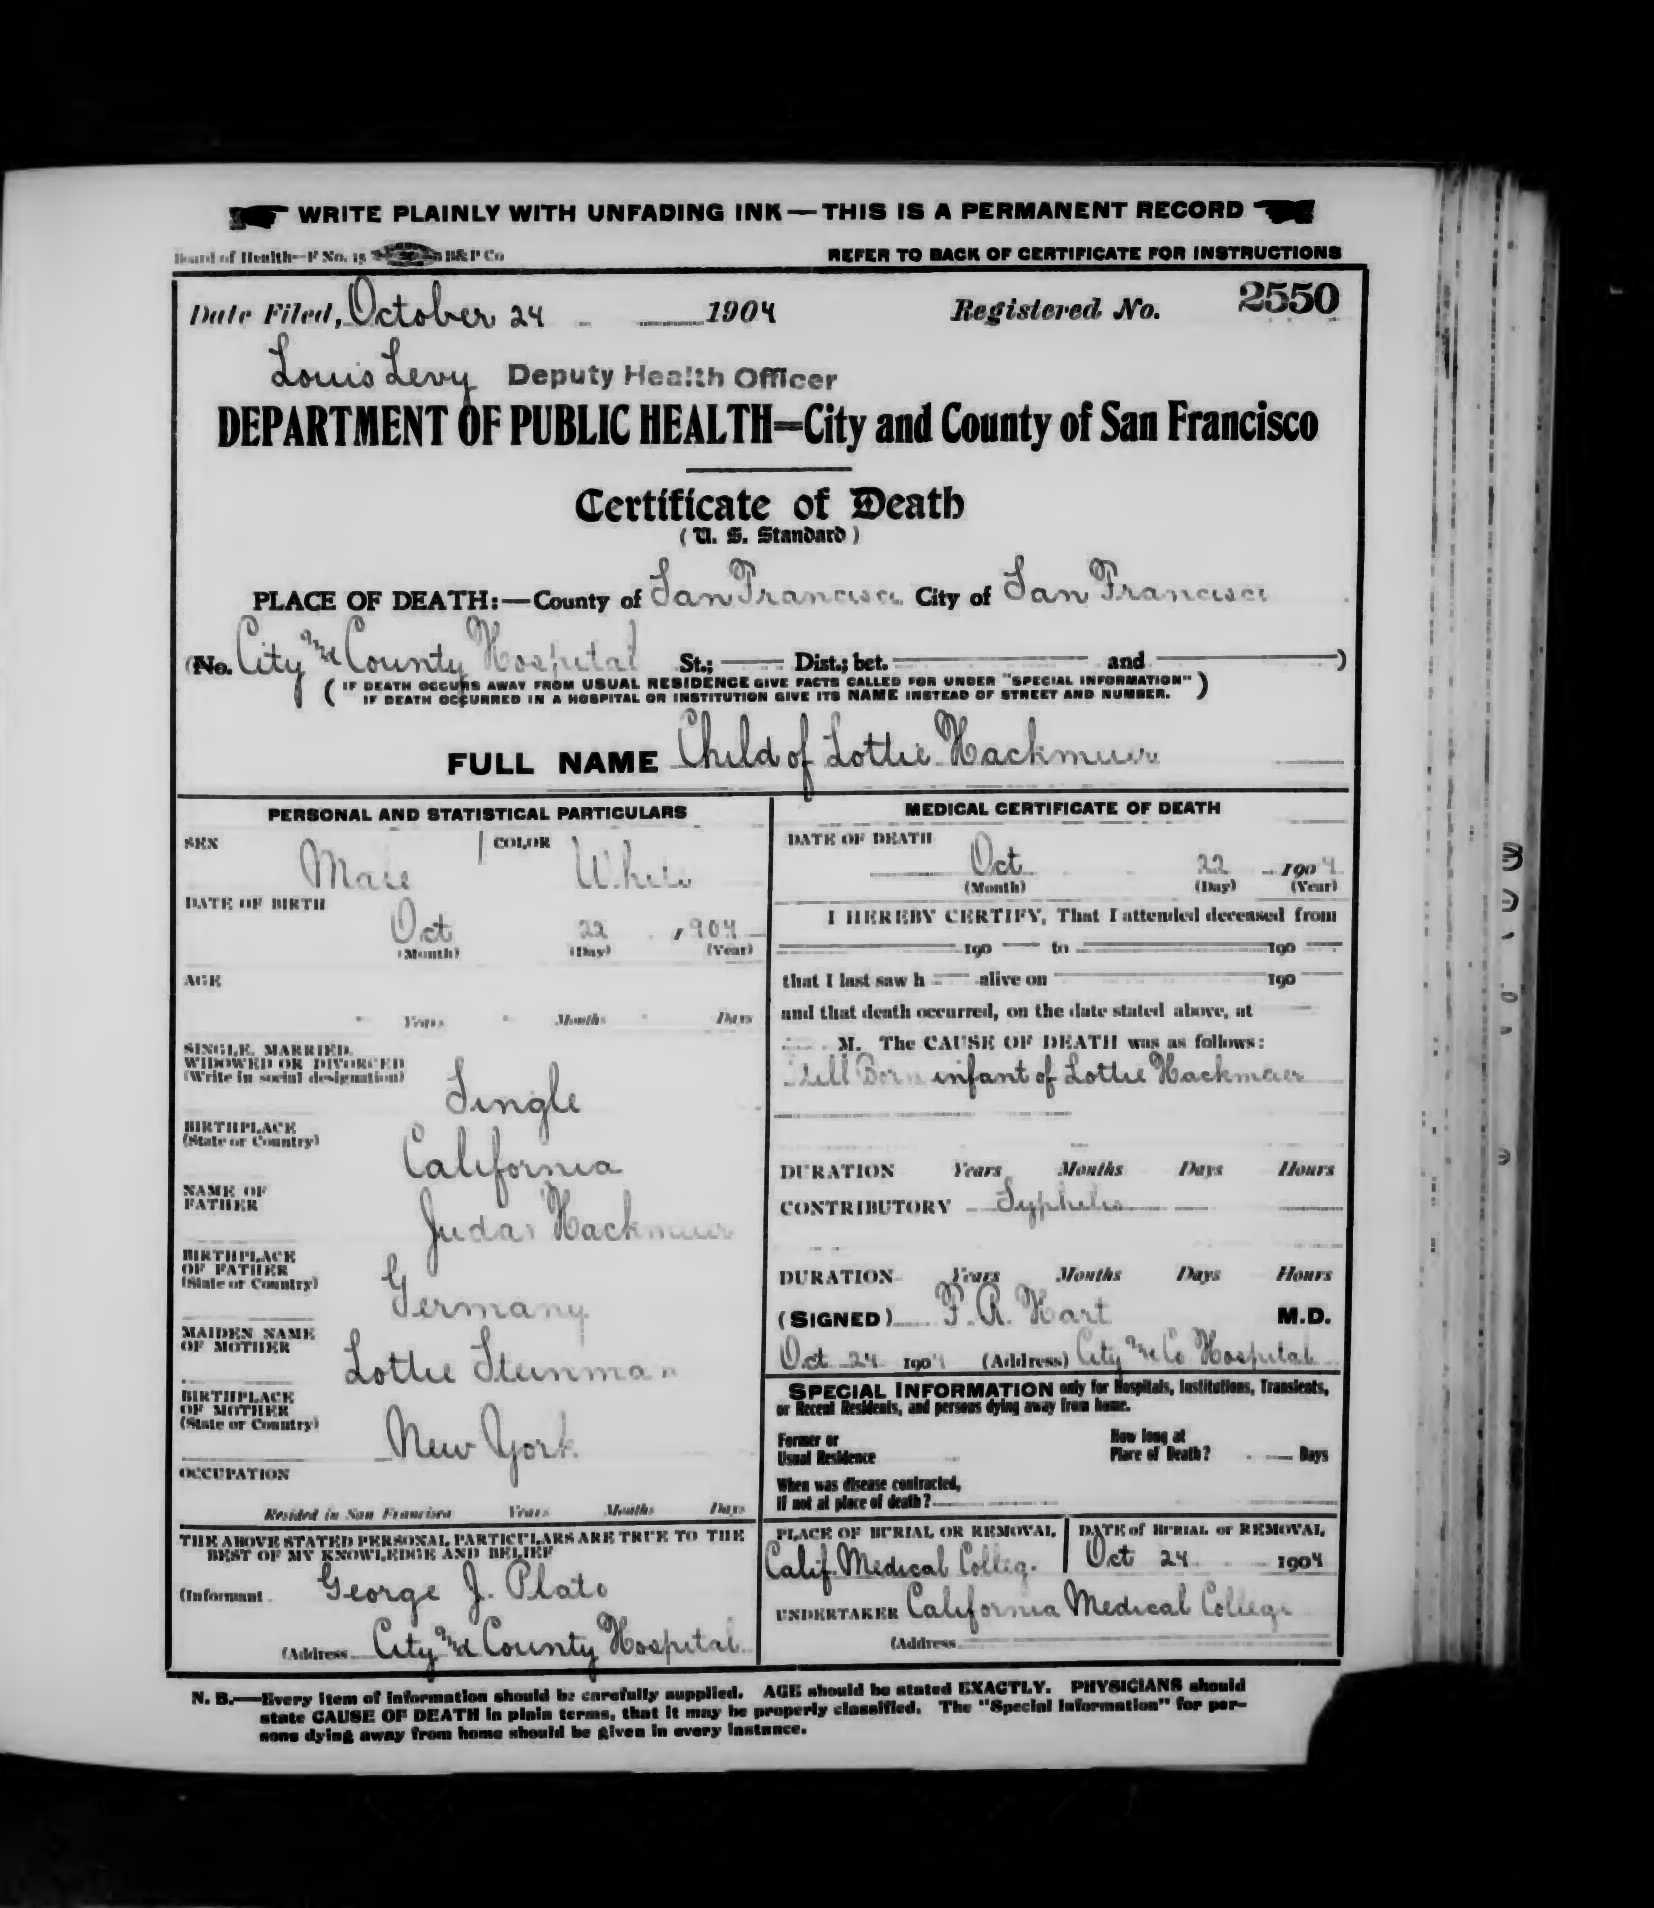 WRITE PLAINLY WITH UNFADING INK—THIS IS A PERMANENT RECORD
Board of Health—F No. 15 B&P Co REFER TO BACK OF CERTIFICATE FOR INSTRUCTIONS
Date Filed, October 24 1904 Registered No. 2550
Louis Levy Deputy Health Officer
DEPARTMENT OF PUBLIC HEALTH=City and County of San Francisco
Certificate of Death
( U. S. Standard )
PLACE OF DEATH:—County of San Francisco City of San Francisco
(No. City and County Hospital St.; Dist.; bet. and )
( IF DEATH OCCURS AWAY FROM USUAL RESIDENCE GIVE FACTS CALLED FOR UNDER "SPECIAL INFORMATION" )
IF DEATH OCCURRED IN A HOSPITAL OR INSTITUTION GIVE ITS NAME INSTEAD OF STREET AND NUMBER.
FULL NAME Child of Lottie Hackmeier
PERSONAL AND STATISTICAL PARTICULARS
SEX Male COLOR White
DATE OF BIRTH
Oct 22 , 904
(Month) (Day) (Year)
AGE
Years Months Days
SINGLE, MARRIED,
WIDOWED OR DIVORCED
(Write in social designation)
Single
BIRTHPLACE
(State or Country)
California
NAME OF
FATHER
Judas Hackmeier
BIRTHPLACE
OF FATHER
(State or Country)
Germany
MAIDEN NAME
OF MOTHER
Lottie Steinman
BIRTHPLACE
OF MOTHER
(State or Country)
New York
OCCUPATION
Resided in San Francisco Years Months Days
THE ABOVE STATED PERSONAL PARTICULARS ARE TRUE TO THE
BEST OF MY KNOWLEDGE AND BELIEF
(Informant George J. Plato
(Address City and County Hospital
MEDICAL CERTIFICATE OF DEATH
DATE OF DEATH
Oct 22 1904
(Month) (Day) (Year)
I HEREBY CERTIFY, That I attended deceased from
190 to 190
that I last saw h alive on 190
and that death occurred, on the date stated above, at
M. The CAUSE OF DEATH was as follows:
Still Born infant of Lottie Hackmeier
DURATION Years Months Days Hours
CONTRIBUTORY Syphilis
DURATION Years Months Days Hours
(SIGNED) F. R. Hart M.D.
Oct 24 1904 (Address) City and Co Hospital
SPECIAL INFORMATION only for Hospitals, Institutions, Transients,
or Recent Residents, and persons dying away from home.
Former or
Usual Residence
How long at
Place of Death? Days
When was disease contracted,
If not at place of death?
PLACE OF BURIAL OR REMOVAL DATE of BURIAL or REMOVAL
Calif. Medical College. Oct 24 1904
UNDERTAKER California Medical College
(Address
N. B.—Every item of information should be carefully supplied. AGE should be stated EXACTLY. PHYSICIANS should
state CAUSE OF DEATH in plain terms, that it may be properly classified. The "Special Information" for per-
sons dying away from home should be given in every instance.